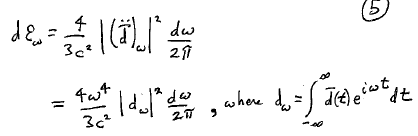 ⑤
dℰ_ω = 4/3c² |(d̈)_ω|² dω/2π
= 4ω⁴/3c² |d_ω|² dω/2π , where d_ω = ∫_{-∞}^{∞} d̄(t) e^{iωt} dt